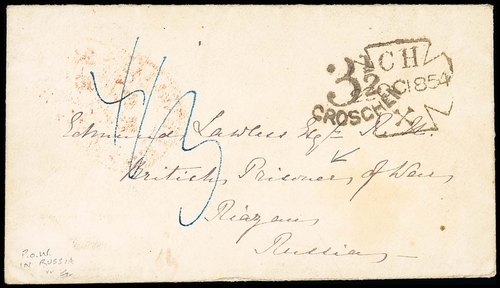 3½
GROSCHEN
CH
1854
X
1/3
Edmund Lawless Esqre R.N.
British Prisoner of War
Riazan
Russia
P.O.W.
IN RUSSIA